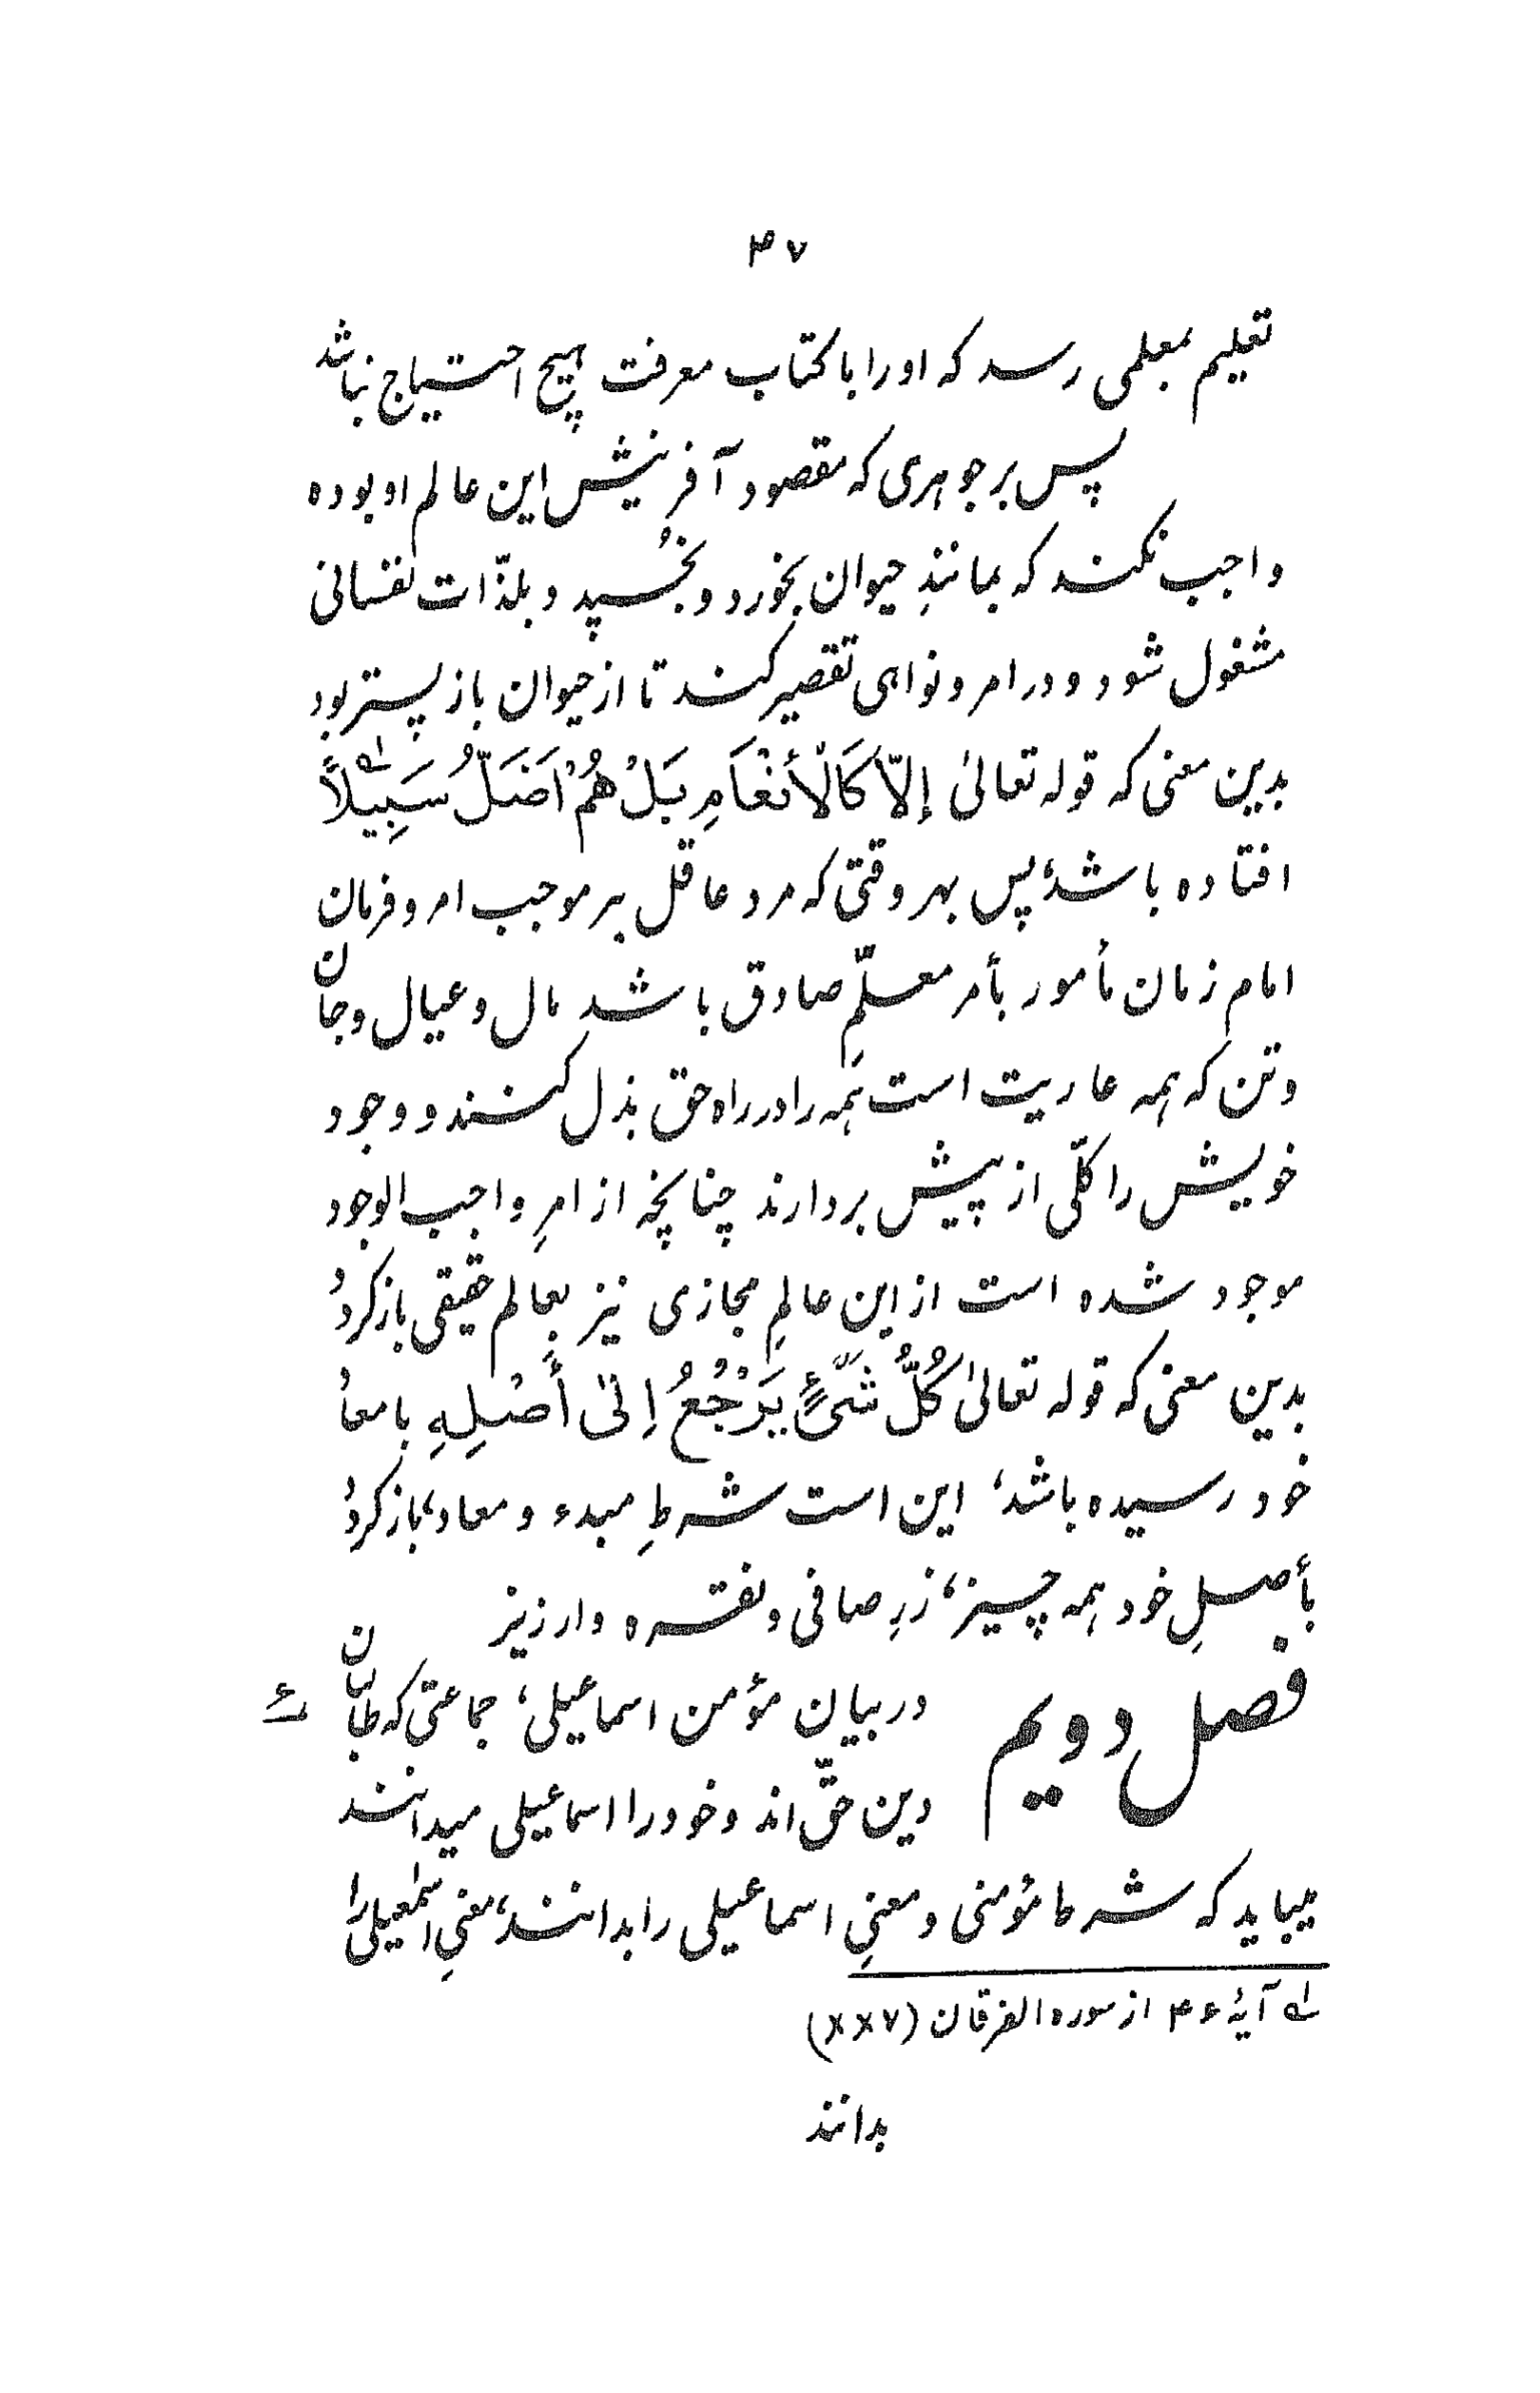 ۴۷
تعلیم بمعلمی رسد که او را با کتاب معرفت هیچ احتیاج نباشد
پس بر جوهری که مقصود آفرینش این عالم او بوده
واجب نکند که بمانندِ حیوان بخورد و بخُسپد و بلذّات نفسانی
مشغول شود و در امر و نواهی تقصیر کند تا از حیوان باز پستر بود
بدین معنی که قوله تعالیٰ إِلّا كَالْأَنْعَامِ بَلْ هُمْ اَضَلُّ سَبِيلاً ۱
افتاده باشد، پس بهر وقتی که مرد عاقل بر موجب امر و فرمان
امام زمان مأمور بأمر معلّمِ صادق باشد مال و عیال و جان
و تن که همه عاریت است همه را در راه حق بذل کنند و وجود
خویش را کلّی از پیش بردارند چنانچه از امرِ واجب الوجود
موجود شده است از این عالمِ مجازی نیز بعالمِ حقیقی باز کردد
بدین معنی که قوله تعالیٰ كُلُّ شَیْءٍ يَرْجُعُ اِلیٰ أَصْلِهِ با معاد
خود رسیده باشد، این است شرطِ مبدء و معاد، باز کردد
بأصلِ خود همه چیز، زرِ صافی و نقره و ارزیز
فصل دویم در بیان مؤمن اسماعیلی، جماعتی که طالبان ۶
دین حقّ اند و خود را اسماعیلی میدانند
میباید که شرط مؤمنی و معنیِ اسماعیلی را بدانند، معنیِ اسمٰعیلی را
۱ آیهٔ ۴۶ از سوره الفرقان (xxv)
بدانند